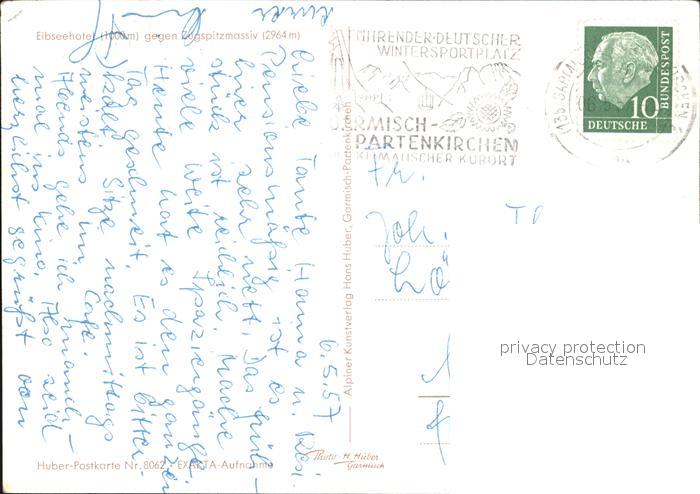 Eibseehotel (1000m) gegen Zugspitzmassiv (2964 m)
FÜHRENDER DEUTSCHER
WINTERSPORTPLATZ
GARMISCH-
PARTENKIRCHEN
KLIMATISCHER KURORT
10
DEUTSCHE
BUNDESPOST
6.5.57
Liebe Tante Hanna u. Resi.
Pensionsmäßig ist es
hier sehr nett. Das Früh-
stück ist reichlich. Mache
viele weite Spaziergänge.
Heute hat es den ganzen
Tag geschneit. Es ist bitter-
kalt. Sitze nachmittags
meistens im Café.
Abends gehe ich manch-
mal ins Kino. Also seid
herzlichst gegrüßt von
eurer
Alpiner Kunstverlag Hans Huber, Garmisch-Partenkirchen
Fr.
Joh.
Lö
privacy protection
Datenschutz
Huber-Postkarte Nr. 8062 · EXAKTA-Aufnahme
Photo-H. Huber
Garmisch